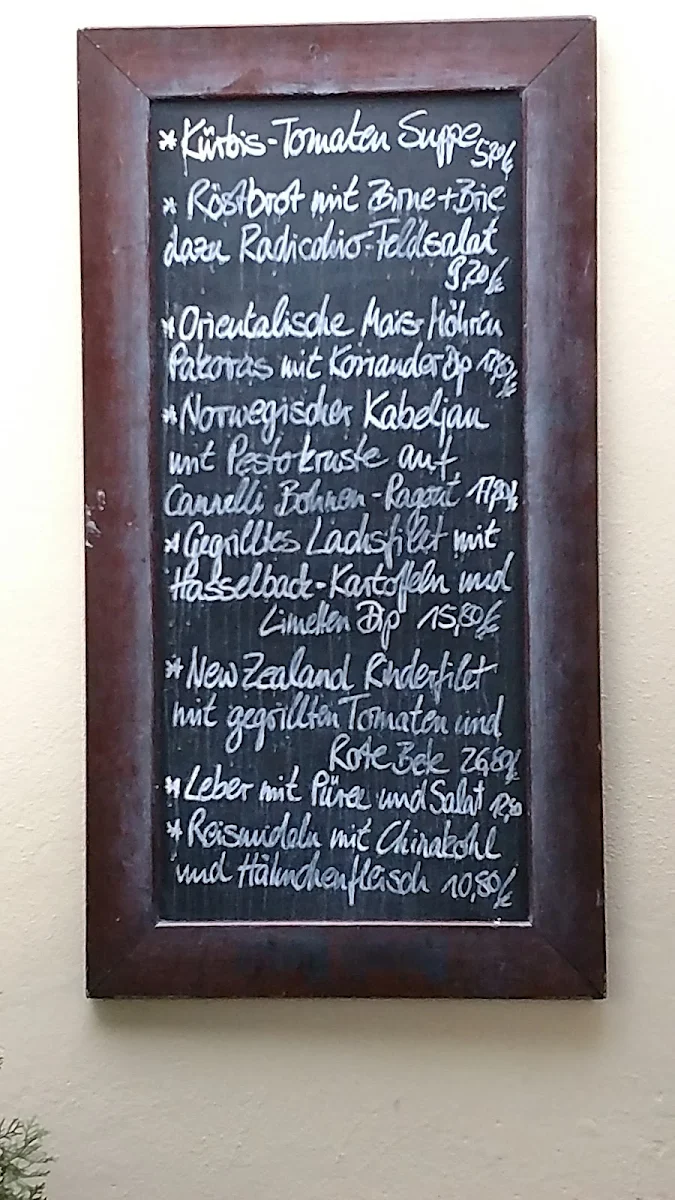 * Kürbis-Tomaten Suppe
* Röstbrot mit Birne+Brie
dazu Radicchio-Feldsalat
9,20/€
* Orientalische Mais-Möhren
Pakoras mit Koriander Dip
* Norwegischer Kabeljau
mit Pestokruste auf
Cannelli Bohnen-Ragout 17,80/€
* Gegrilltes Lachsfilet mit
Hasselback-Kartoffeln und
Limetten Dip 15,80/€
* New Zealand Rinderfilet
mit gegrillten Tomaten und
Rote Bete 26,80/€
* Leber mit Püree und Salat
* Reisnudeln mit Chinakohl
und Hähnchenfleisch 10,80/€